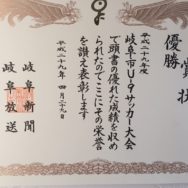 賞状
優勝
平成二十九年度
岐阜市U-9サッカー大会
で頭書の優れた成績を収め
られたのでここにその栄誉
を讃え表彰します
平成二十九年 四月二十九日
岐阜新聞
岐阜放送